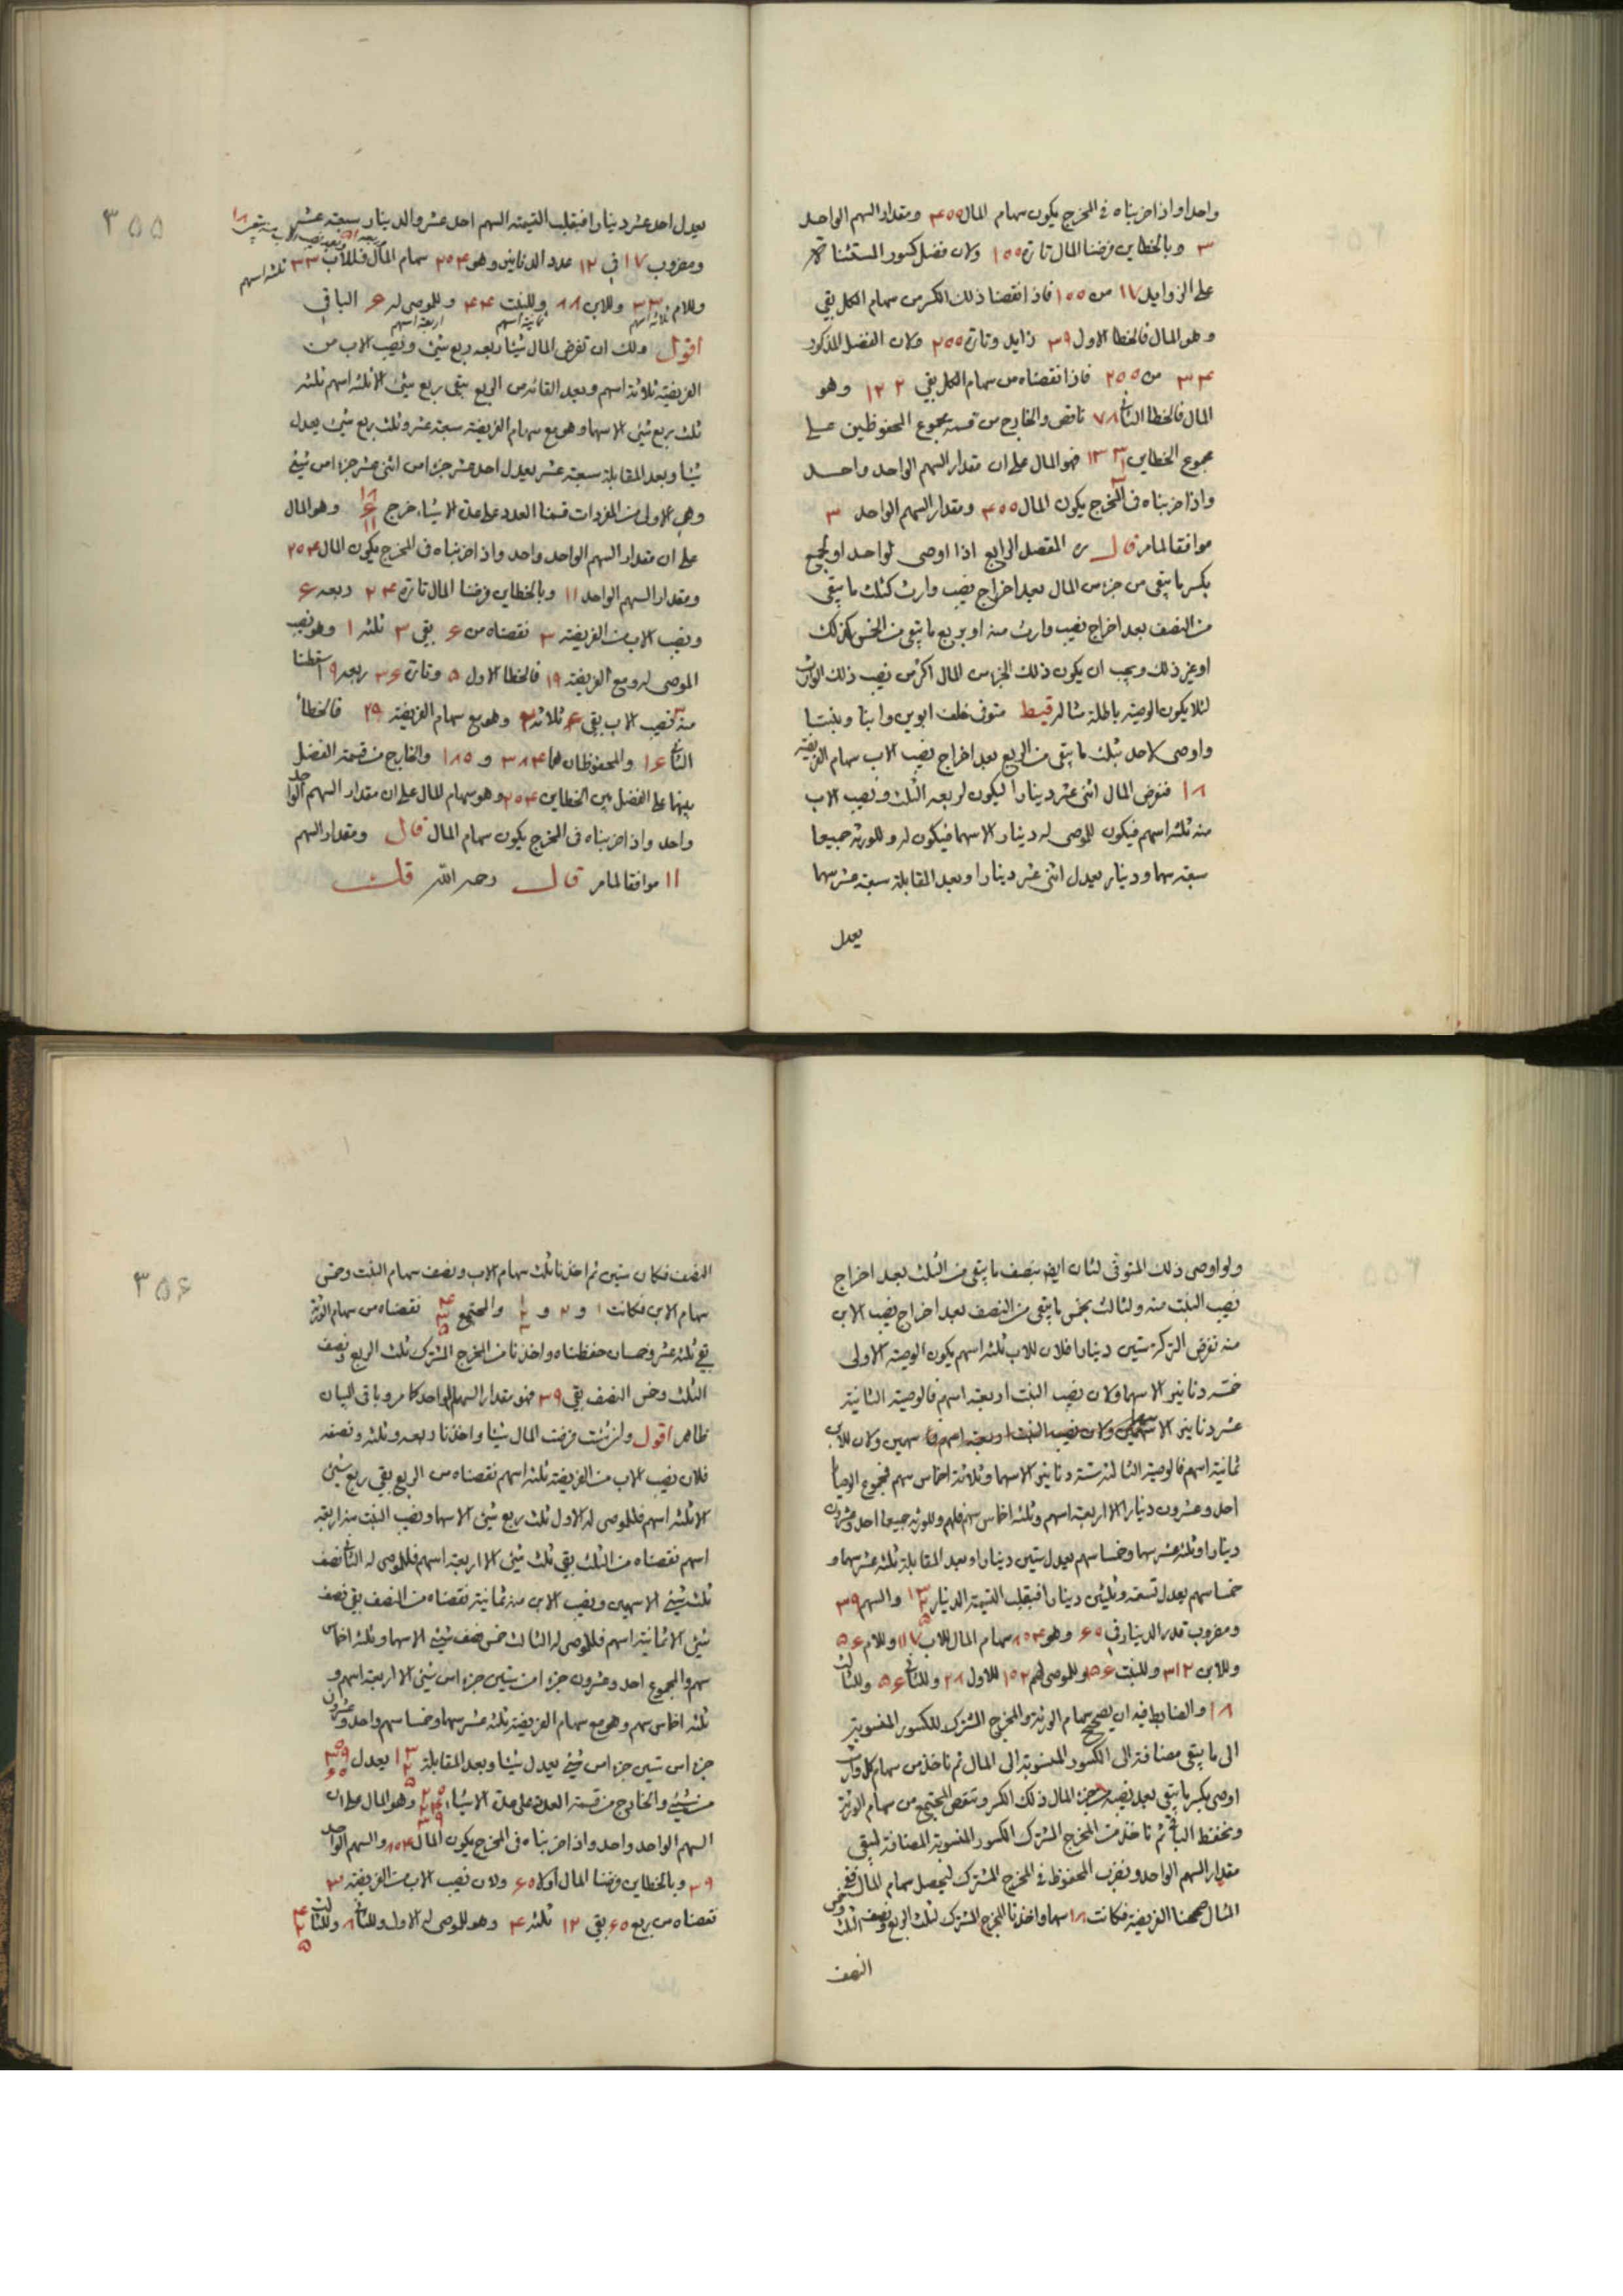 واحدا واذا ضربناه في المخرج يكون سهام المال ۴۰۰ ومقدار السهم الواحد
۳ وبالخطاين فرضنا المال تارة ۱۰۰ وكان فضل كسور المستثناة
على الزوايد ۱۷ من ۱۰۰ فاذا نقصنا ذلك الكسر من سهام الكل بقي
وهو المال فالخطا الاول ۳۹ زايد وتارة ۲۰۰ وكان الفضل المذكور
۳۴ من ۲۰۰ فاذا نقصناه من سهام الكل بقي ۱۲۲ وهو
المال فالخطا الثاني ۷۸ ناقص والخارج من قسمة مجموع المحفوظين على
مجموع الخطاين ۱۳۳ فهو المال على ان مقدار السهم الواحد واحد
واذا ضربناه في المخرج يكون المال ۴۰۰ ومقدار السهم الواحد ۳
موافقا لما مر قال من المفصل الرابع اذا اوصى لواحد او لجمع
بكسر ما يبقى من جزء من المال بعد اخراج نصيب وارث كثلث ما يبقى
من النصف بعد اخراج نصيب وارث منه او بربع ما يبقى من الخمس كذلك
او غير ذلك ويجب ان يكون ذلك الجزء من المال اكثر من نصيب ذلك الوارث
لئلا يكون الوصية باطلة مثاله متوفى خلف ابوين وابنا وبنتا
واوصى لاحد بثلث ما يبقى من الربع بعد اخراج نصيب الاب سهام الفريضة
۱۸ فنفرض المال اثنى عشر دينارا ليكون لربعه الثلث ونصيب الاب
منه ثلثة اسهم فيكون للموصى له دينار الا سهما فيكون له وللورثة جميعا
سبعة سهما ودينار يعدل اثنى عشر دينارا وبعد المقابلة سبعة عشر سهما
يعدل
۳۵۵
يعدل احد عشر دينارا فبقلب القيمة السهم احد عشر والدينار سبعة عشر
ومضروب ۱۷ في ۱۲ عدد الدنانير وهو ۲۰۴ سهام المال فللاب ۳۳ ثلثة اسهم
وللام ۳۳ وللابن ۸۸ وللبنت ۴۴ وللموصى له ۶ الباقي
ثلثة اسهم ثمانية اسهم اربعة اسهم
اقول ولك ان تفرض المال شيئا ربعه ربع شيء ونصيب الاب من
الفريضة ثلاثة اسهم وبعد القائه من الربع يبقى ربع شيء الا ثلثة اسهم ثلثه
ثلث ربع شيء الا سهما وهو مع سهام الفريضة سبعة عشر وثلث ربع شيء يعدل
شيئا وبعد المقابلة سبعة عشر يعدل احد عشر جزءا من اثنى عشر جزءا من شيء
وهي الاولى من المفردات قسمنا العدد على عدة الاشياء خرج وهو المال
على ان مقدار السهم الواحد واحد واذا ضربناه في المخرج يكون المال ۲۰۴
ومقدار السهم الواحد ۱۱ وبالخطاين فرضنا المال تارة ۲۴ ربعه ۶
ونصيب الاب من الفريضة ۳ نقصناه من ۶ بقي ۳ ثلثه ۱ وهو نصيب
الموصى له ومع الفريضة ۱۹ فالخطا الاول ۵ وتارة ۳۶ ربعه ۹ اسقطنا
منه نصيب الاب بقي ۶ ثلاثه ۲ وهو مع سهام الفريضة ۲۰ فالخطأ
الثاني ۱۶ والمحفوظان هما ۳۸۴ و ۱۸۰ والخارج من قسمة الفضل
بينهما على الفضل بين الخطاين ۲۰۴ وهو سهام المال على ان مقدار السهم الواحد
واحد واذا ضربناه في المخرج يكون سهام المال قال ومقدار السهم
۱۱ موافقا لما مر قال رحمه الله قلت
ولو اوصى ذلك المتوفى لثان ايضا بنصف ما يبقى من الثلث بعد اخراج
نصيب البنت منه ولثالث بخمس ما يبقى من النصف بعد اخراج نصيب الابن
منه نفرض التركة ستين دينارا فلان للاب ثلثة اسهم يكون الوصية الاولى
خمسة دنانير الا سهما وكان نصيب البنت اربعة اسهم فالوصية الثانية
عشر دنانير الا سهمين وكان للابن
ثمانية اسهم فالوصية الثالثة ستة دنانير الا سهما وثلاثة اخماس سهم فمجموع الوصايا
احد وعشرون دينارا الا اربعة اسهم وثلثة اخماس سهم فلهم وللورثة جميعا احد وعشرون
دينارا وثلثة عشر سهما وخمسا سهم يعدل ستين دينارا وبعد المقابلة ثلثة عشر سهما و
خمسا سهم يعدل تسعة وثلثين دينارا فبقلب القيمة الدينار ۱۳ والسهم ۳۹
ومضروب قدر الدينار في ۶۰ وهو ۸۰۴ سهام المال للاب ۱۱۷ وللام
وللابن ۳۱۲ وللبنت ۱۵۶ وللموصى لهم ۱۰۲ للاول ۲۸ وللثاني ۵۶ وللثالث
۱۸ والضابط فيه ان يصحح سهام الورثة والمخرج المشترك للكسور المنسوبة
الى ما يبقى مضافة الى الكسور المنسوبة الى المال ثم ناخذ من سهام كل وارث
اوصى بكسر ما يبقى بعد نصيبه من جزء المال ذلك الكسر وتنقص المجتمع من سهام الورثة
وتحفظ الباقي ثم ناخذ من المخرج المشترك الكسور المنسوبة المضافة ليبقى
مقدار السهم الواحد ونضرب المحفوظ في المخرج المشترك ليحصل سهام المال ففي
المثال صححنا الفريضة فكانت ۱۸ سهما واخذنا المخرج المشترك لثلث الربع ونصف الثلث وخمس
النصف
۳۵۶
النصف فكان ستين ثم اخذنا ثلث سهام الاب ونصف سهام البنت وخمس
سهام الابن فكانت ۱ و ۲ و والمجتمع نقصناه من سهام الورثة
بقي ثلثة عشر وخمسان حفظناه واخذنا من المخرج المشترك ثلث الربع ونصف
الثلث وخمس النصف بقي ۳۹ فهو مقدار السهم الواحد كما مر وباقي البيان
ظاهر اقول وان شئت فرضت المال شيئا واخذنا ربعه وثلثه ونصفه
فلان نصيب الاب من الفريضة ثلثة اسهم نقصناه من الربع بقي ربع شيء
الا ثلثة اسهم فللموصى له الاول ثلث ربع شيء الا سهما ونصيب البنت منه اربعة
اسهم نقصناه من الثلث بقي ثلث شيء الا اربعة اسهم فللموصى له الثاني نصف
ثلث شيء الا سهمين ونصيب الابن منه ثمانية نقصناه من النصف بقي نصف
شيء الا ثمانية اسهم فللموصى له الثالث خمس نصف شيء الا سهما وثلثة اخماس
سهم والمجموع احد وعشرون جزءا من ستين جزءا من شيء الا اربعة اسهم و
ثلثة اخماس سهم وهو مع سهام الفريضة ثلثة عشر سهما وخمسا سهم واحد وعشرون
جزءا من ستين جزءا من شيء يعدل شيئا وبعد المقابلة يعدل
من شيء والخارج من قسمة العدد على عدة الاشياء وهو المال على ان
السهم الواحد واحد واذا ضربناه في المخرج يكون المال ۸۰۴ والسهم الواحد
۳۹ وبالخطاين فرضنا المال اولا ۶۰ ولان نصيب الاب من الفريضة ۳
نقصناه من ربع ۶۰ بقي ۱۲ ثلثه ۴ وهو للموصى له الاول وللثاني ۸ وللثالث